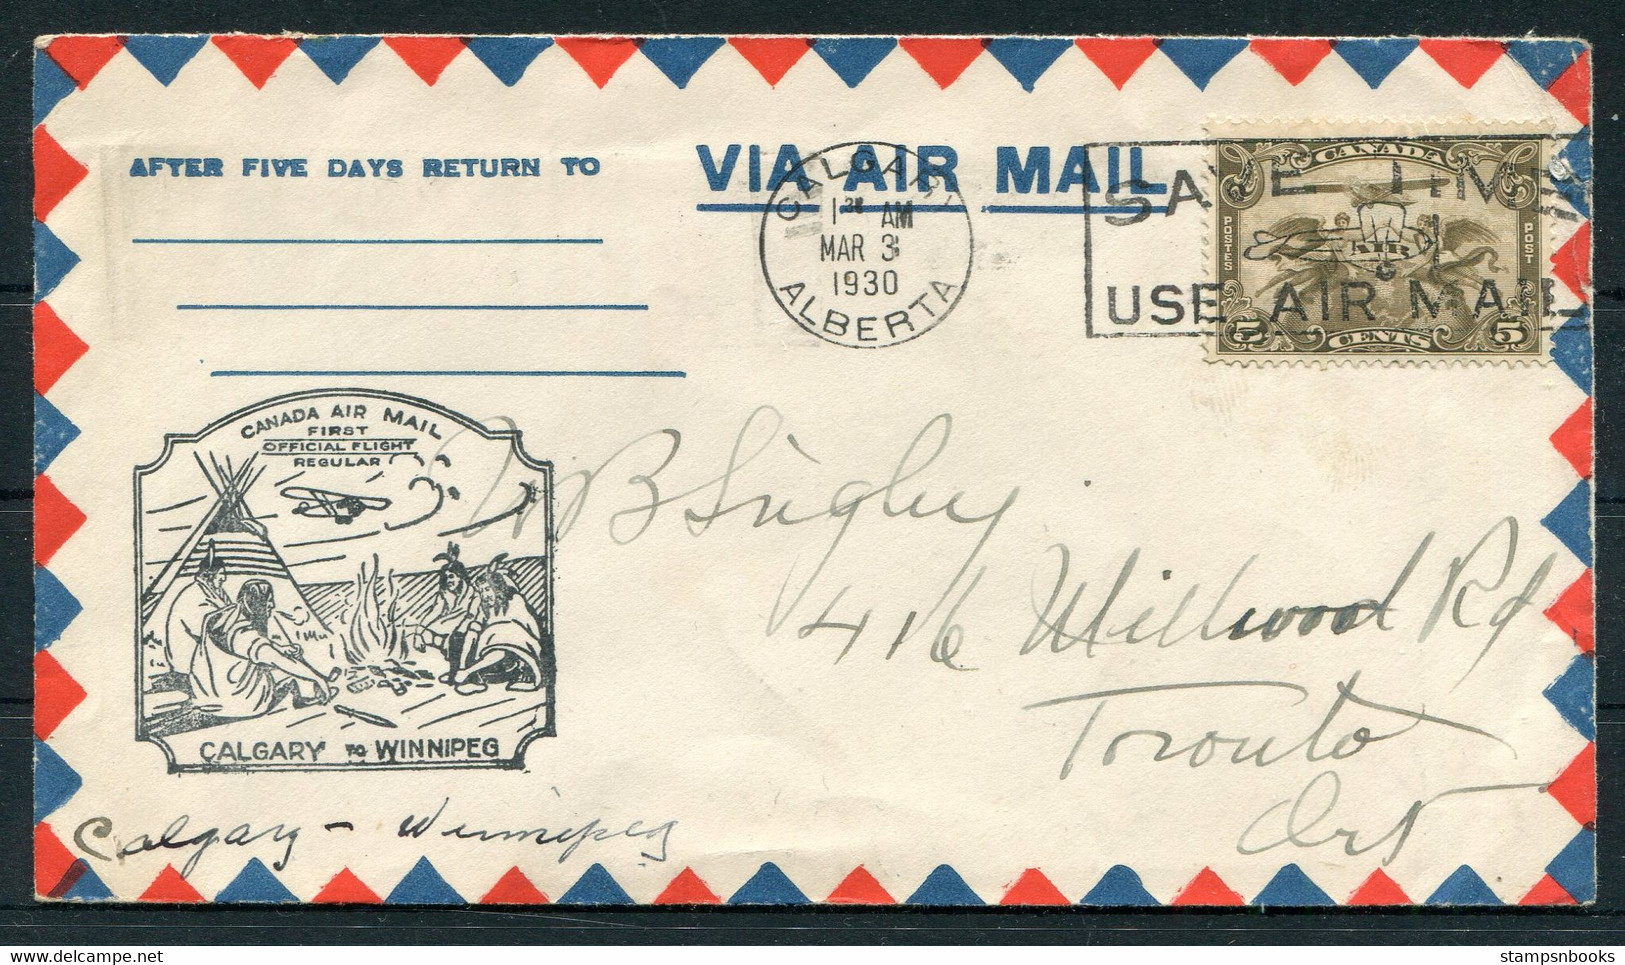 AFTER FIVE DAYS RETURN TO
VIA AIR MAIL
CALGARY
1 30 AM
MAR 3
1930
ALBERTA
SAVE TIME
USE AIR MAIL
CANADA
POSTES
POST
AIR
5 CENTS 5
CANADA AIR MAIL
FIRST
OFFICIAL FLIGHT
REGULAR
CALGARY TO WINNIPEG
B Singley
416 Millwood Rd
Toronto
Ont
Calgary - Winnipeg
stampsnbooks